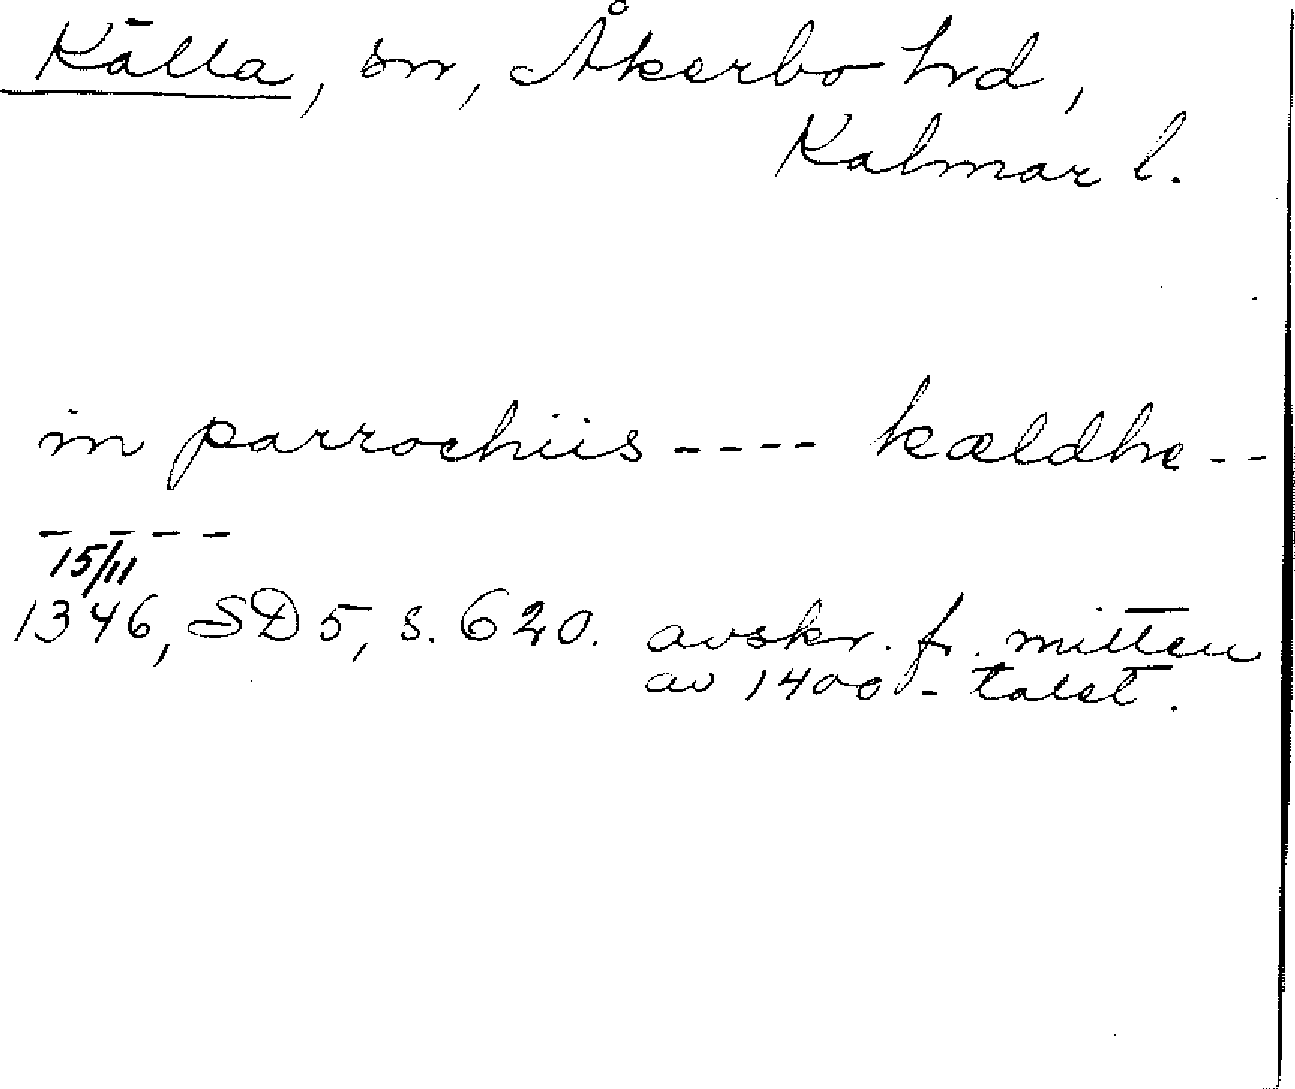 Källa, sn, Åkerbo hd,
Kalmar l.
in parrochiis ---- kældhe --
----
15/11
1346, SD 5, s. 620. avskr. fr. mitten
av 1400-talet.